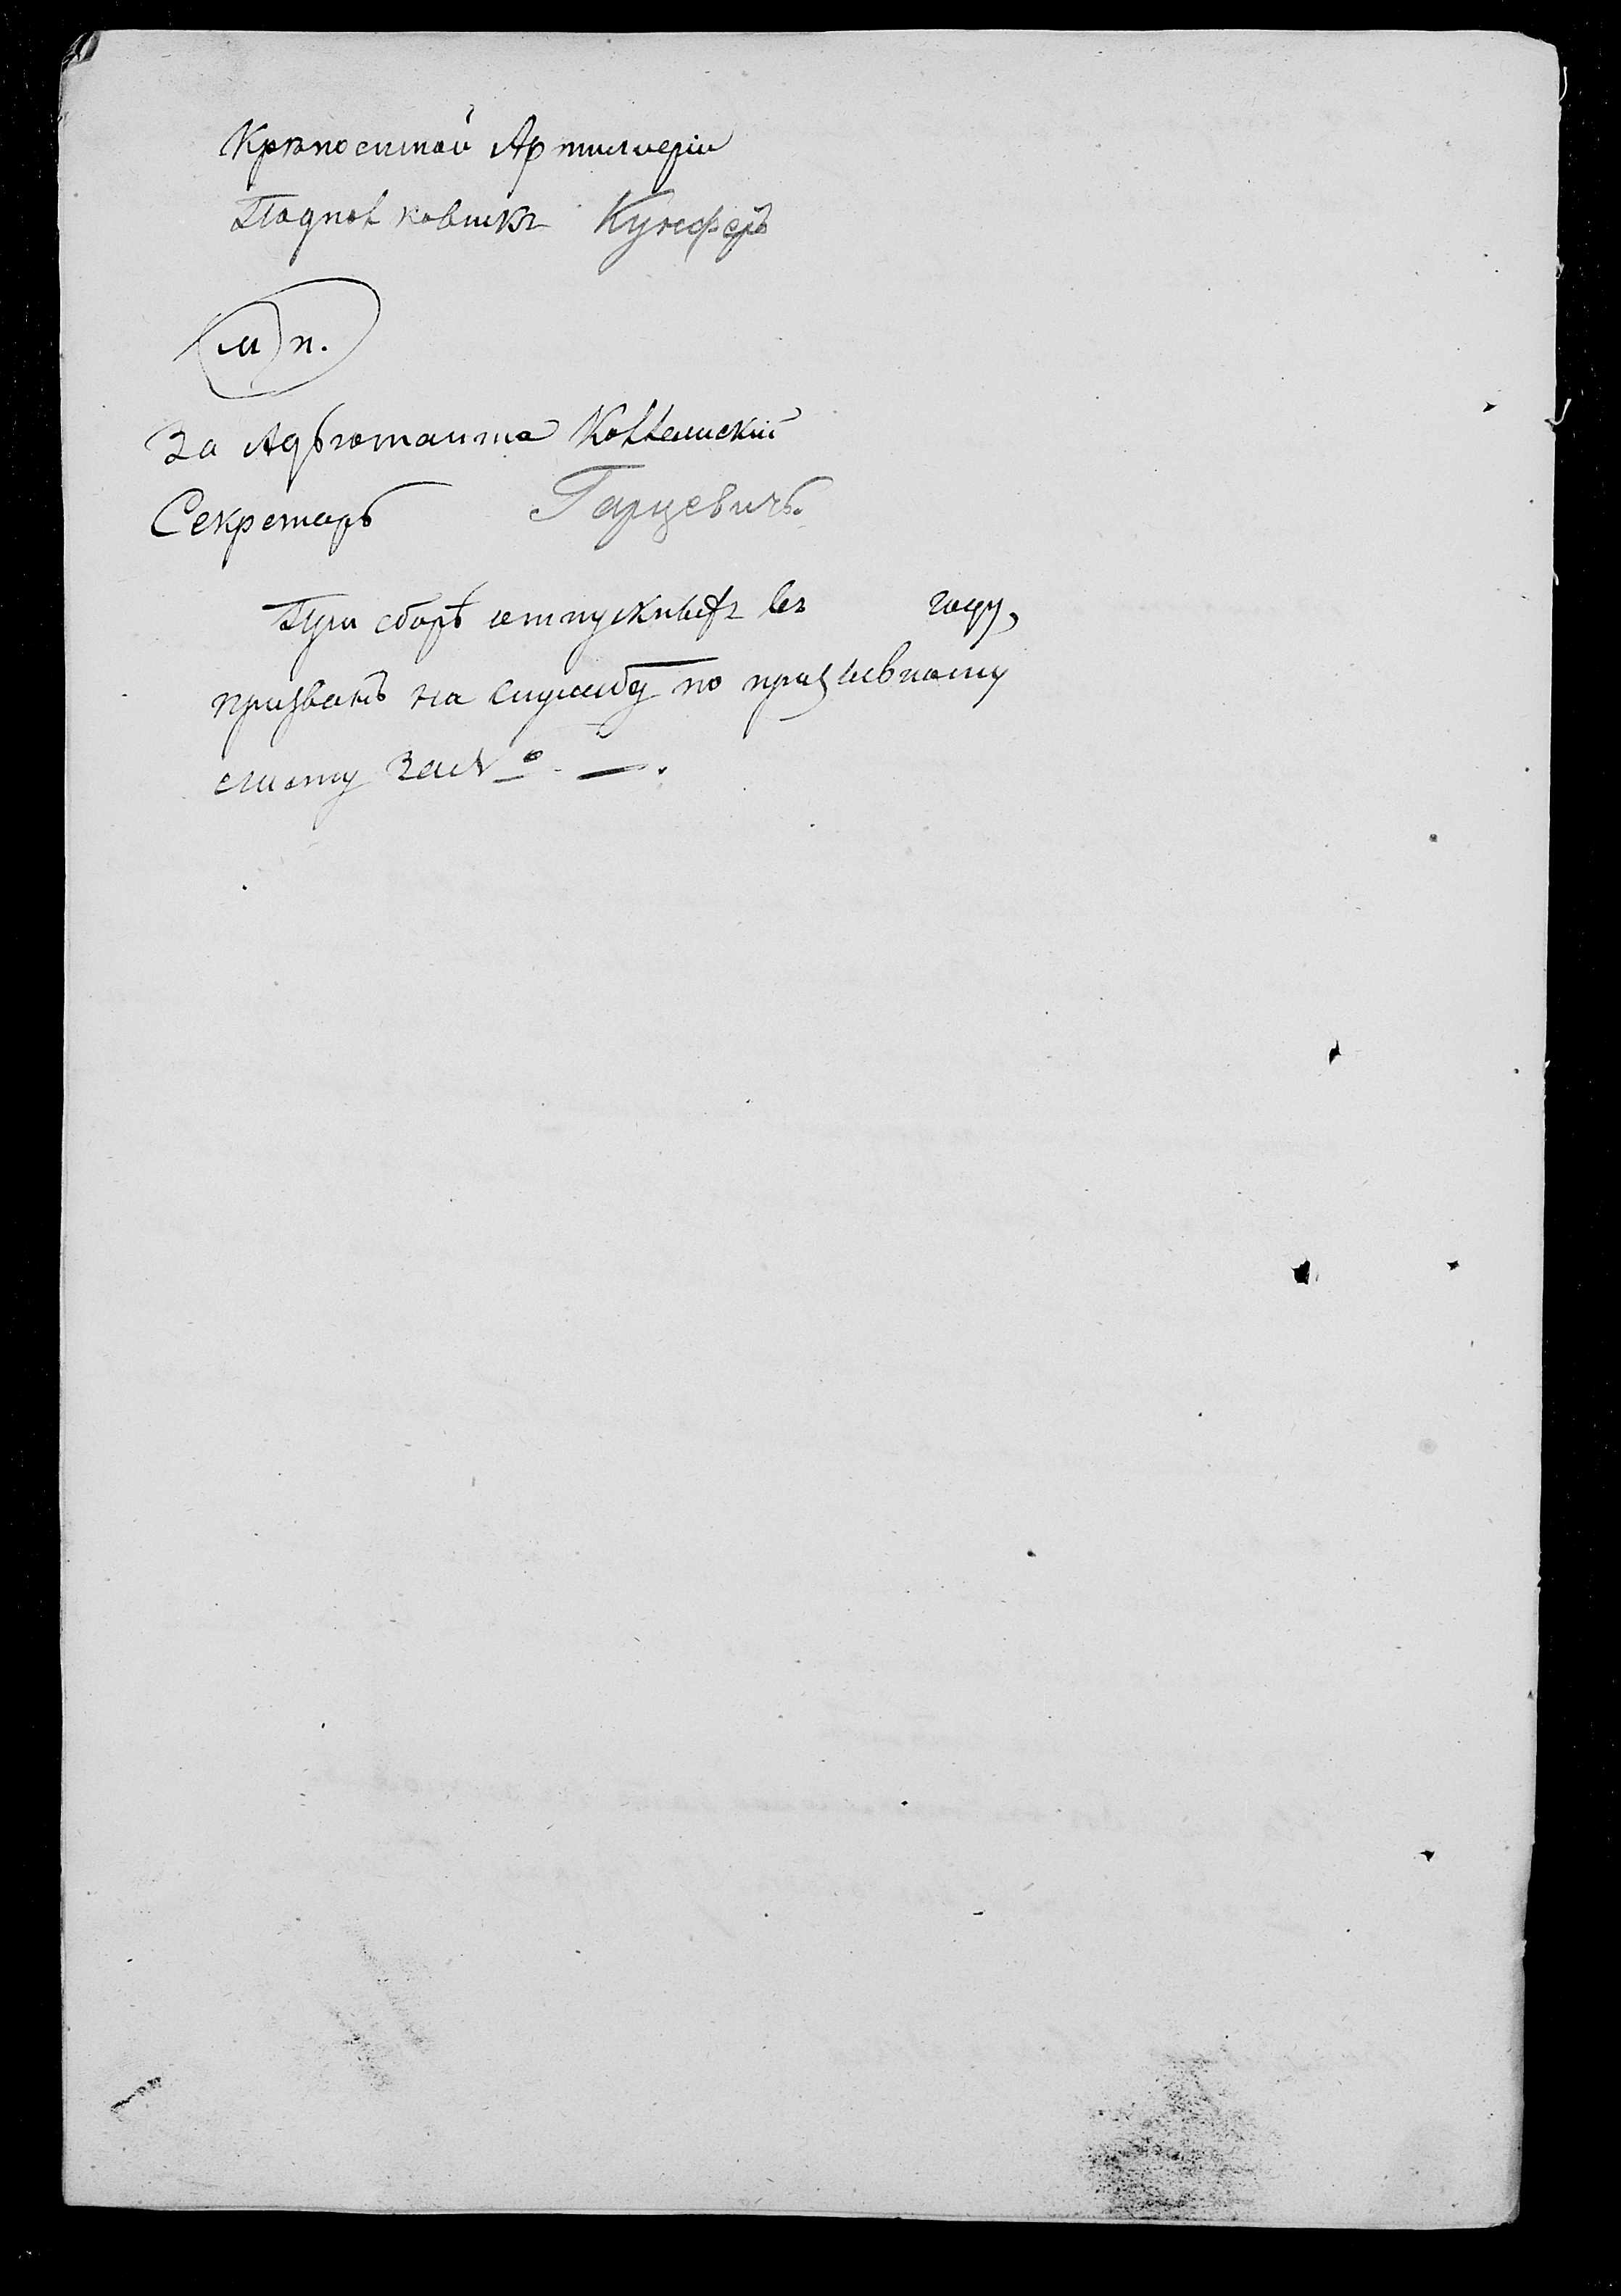 Крѣпостной Артиллеріи
Подполковникъ Купферъ
М п.
За Адъютанта
Секретарь Гарцевичъ.
При сборѣ отпускныхъ въ году,
призванъ на службу по призывному
списку за № — .